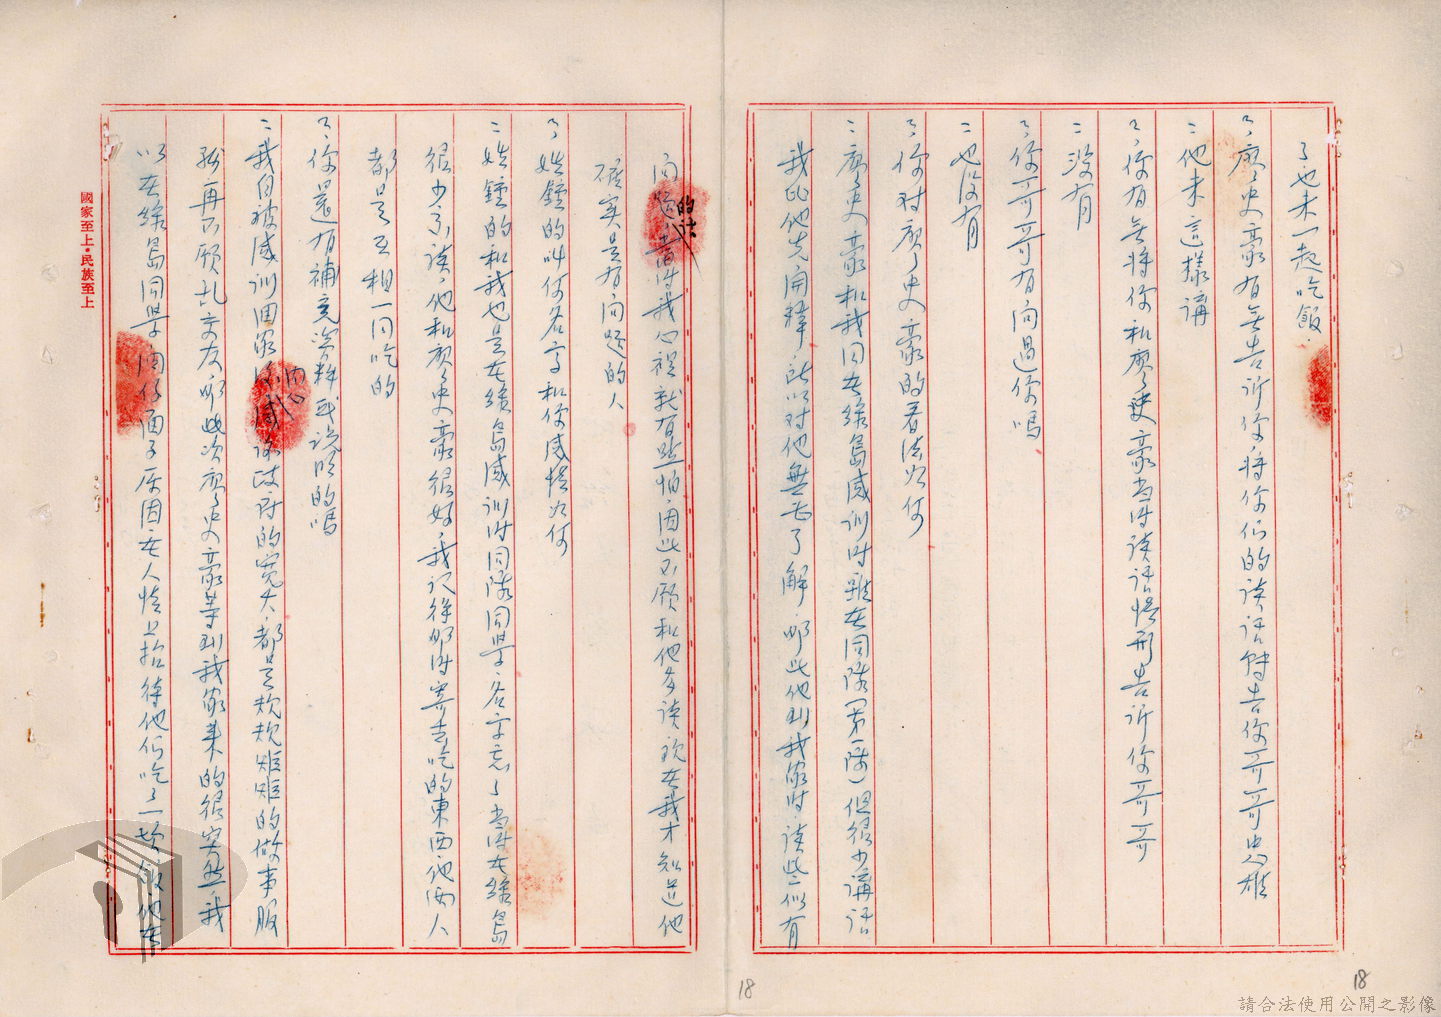 了也未一起吃飯
問、廖史豪有無告訴你、將你們的談話轉告你哥哥史雄
：他未這樣講
問、你有無將你和廖史豪當時談話情形告訴你哥哥
：沒有
問、你哥哥有問過你嗎
：也沒有
問、你对廖史豪的看法如何
：廖史豪和我同在綠島感訓时雖在同隊(第一隊)但很少講話
我比他先開釋、所以对他無甚了解、那此他到我家时、談些似有
問題的話、當时我心裡就有點怕、因此不願和他多談現在我才知道他
確实是有問題的人
問、姓鐘的叫何名字和你感情如何
：姓鐘的和我也是在綠島感訓时同隊同學、名字忘了当时在綠島
很少交談、他和廖史豪很好、我记得那时寄去吃的東西他兩人
都是互相一同吃的
問、你還有補充資料或說明的嗎
：我自被感訓回家後內心感謝政府的寬大、都是規規矩矩的做事服
務再不願乱交友那此次廖史豪等到我家來的很突然、我
以在綠島同學、関係面子原因在人情上招待他們吃了一頓飯他在
國家至上•民族至上
18
18
請合法使用公開之影像